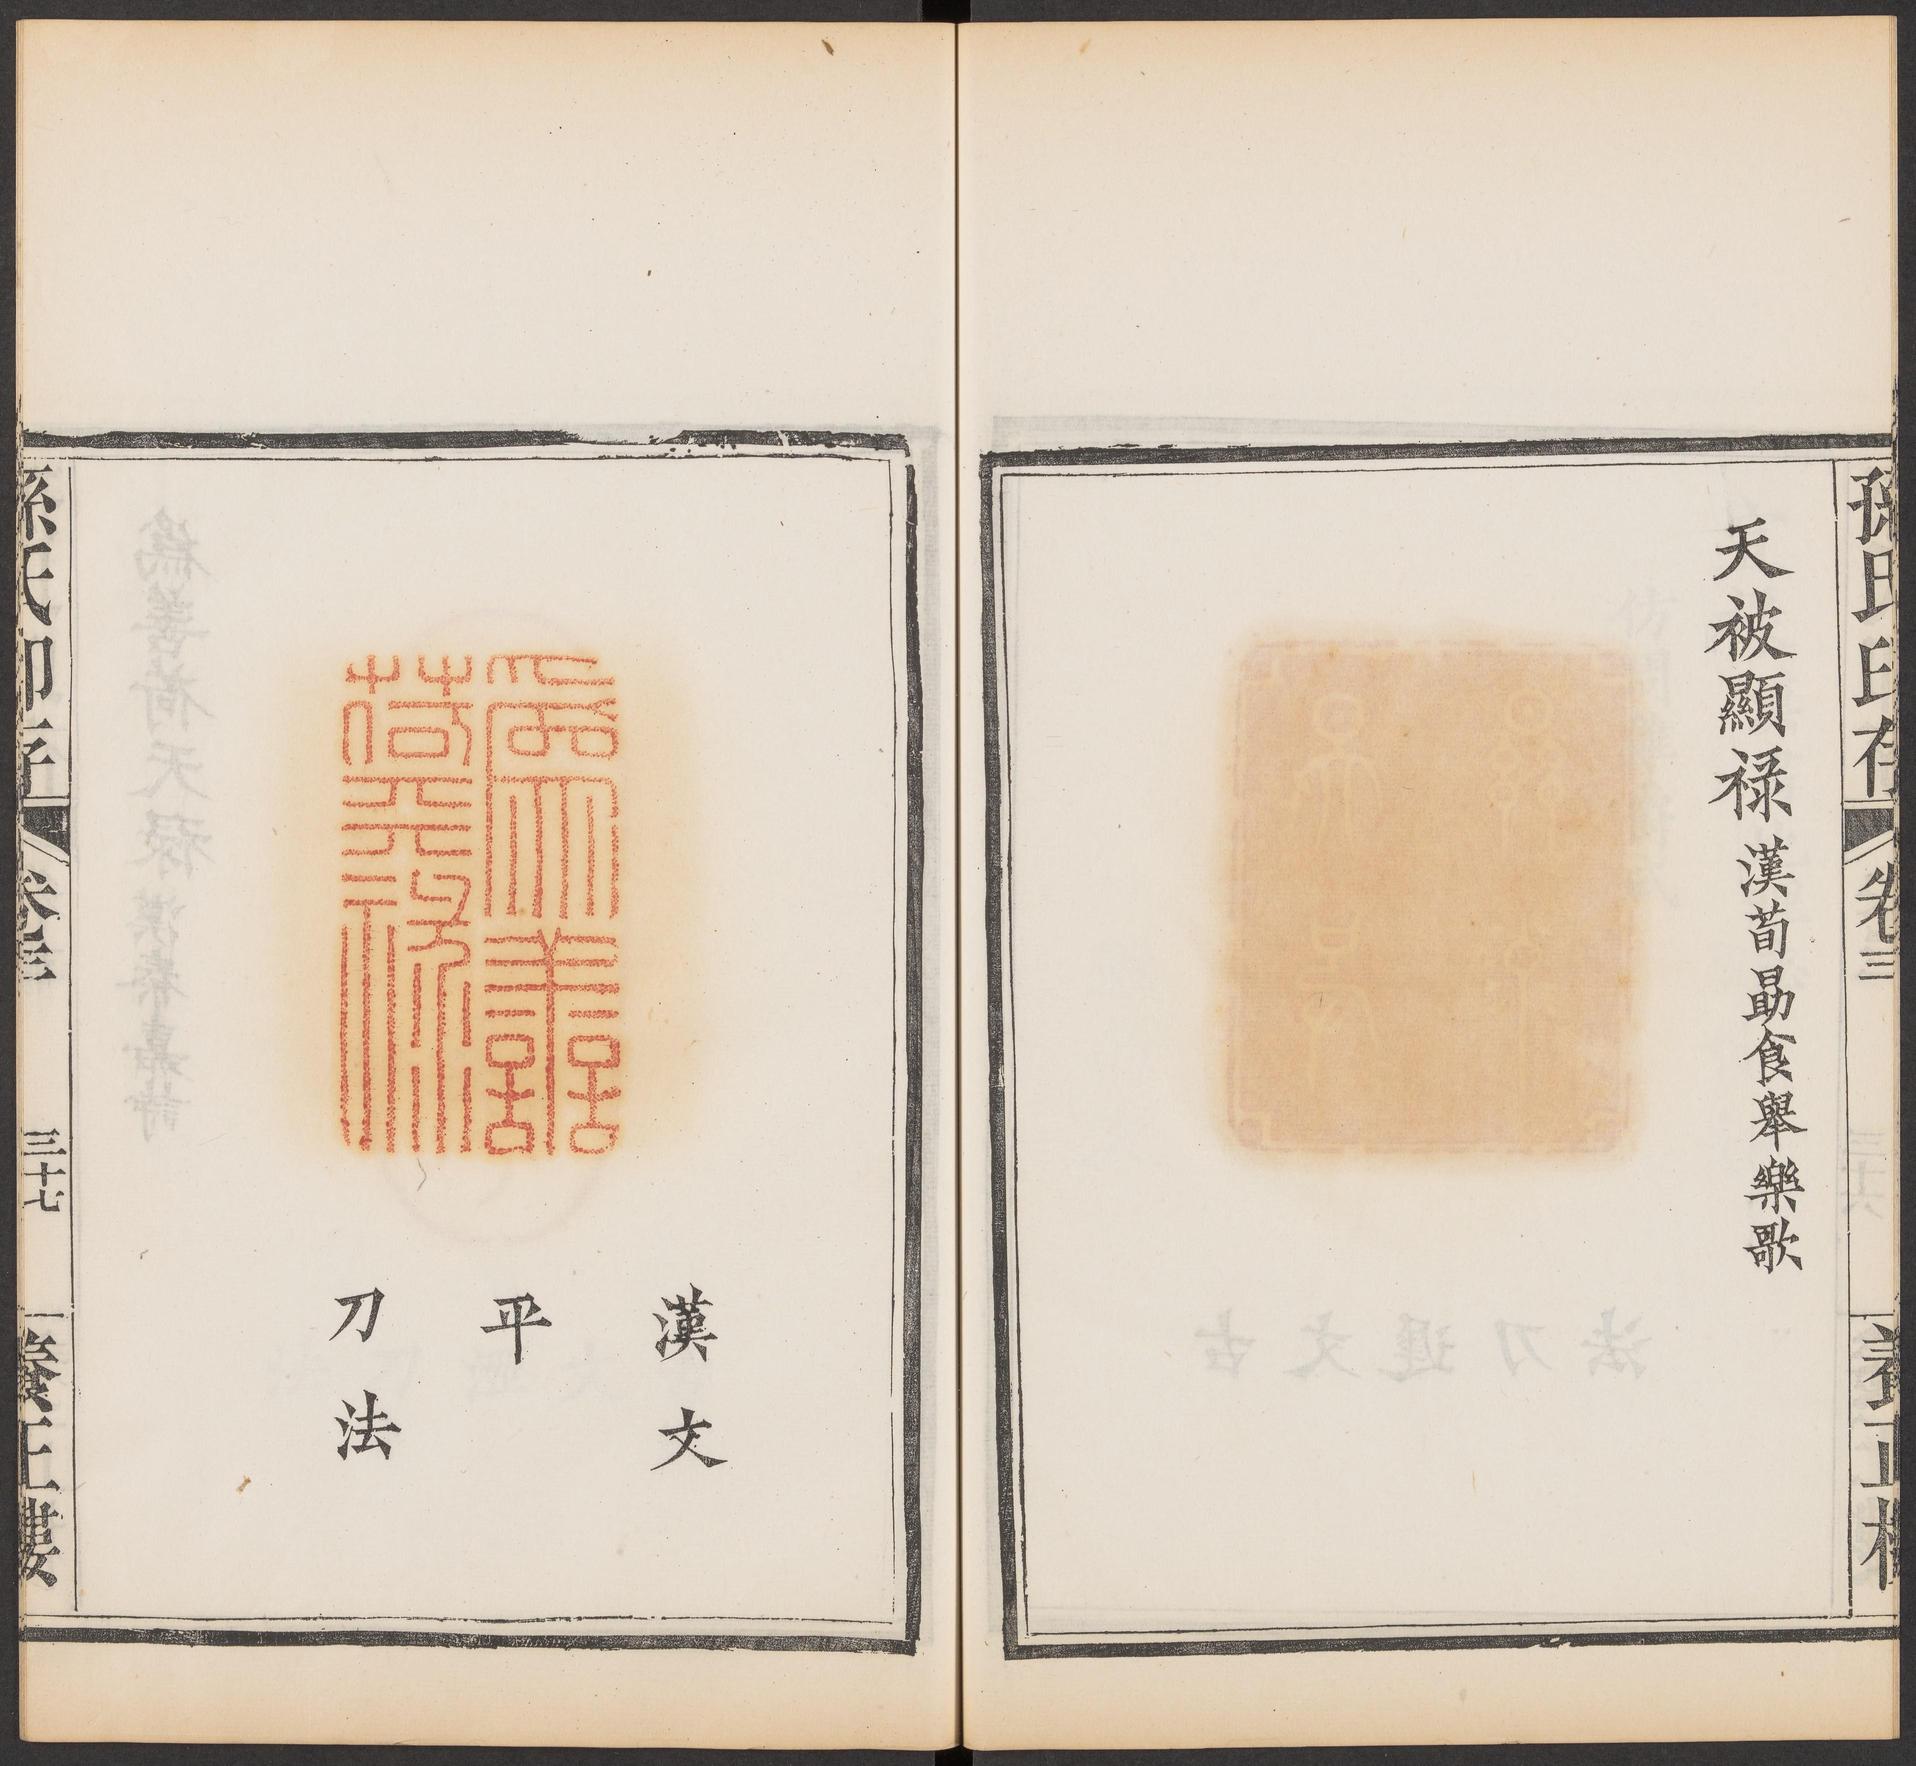 孫氏印存
卷三
養正樓
天被顯禄漢荀勗食舉樂歌
爲善荷天祿
漢文
平
刀法
孫氏印存
卷三
三十七
養正樓